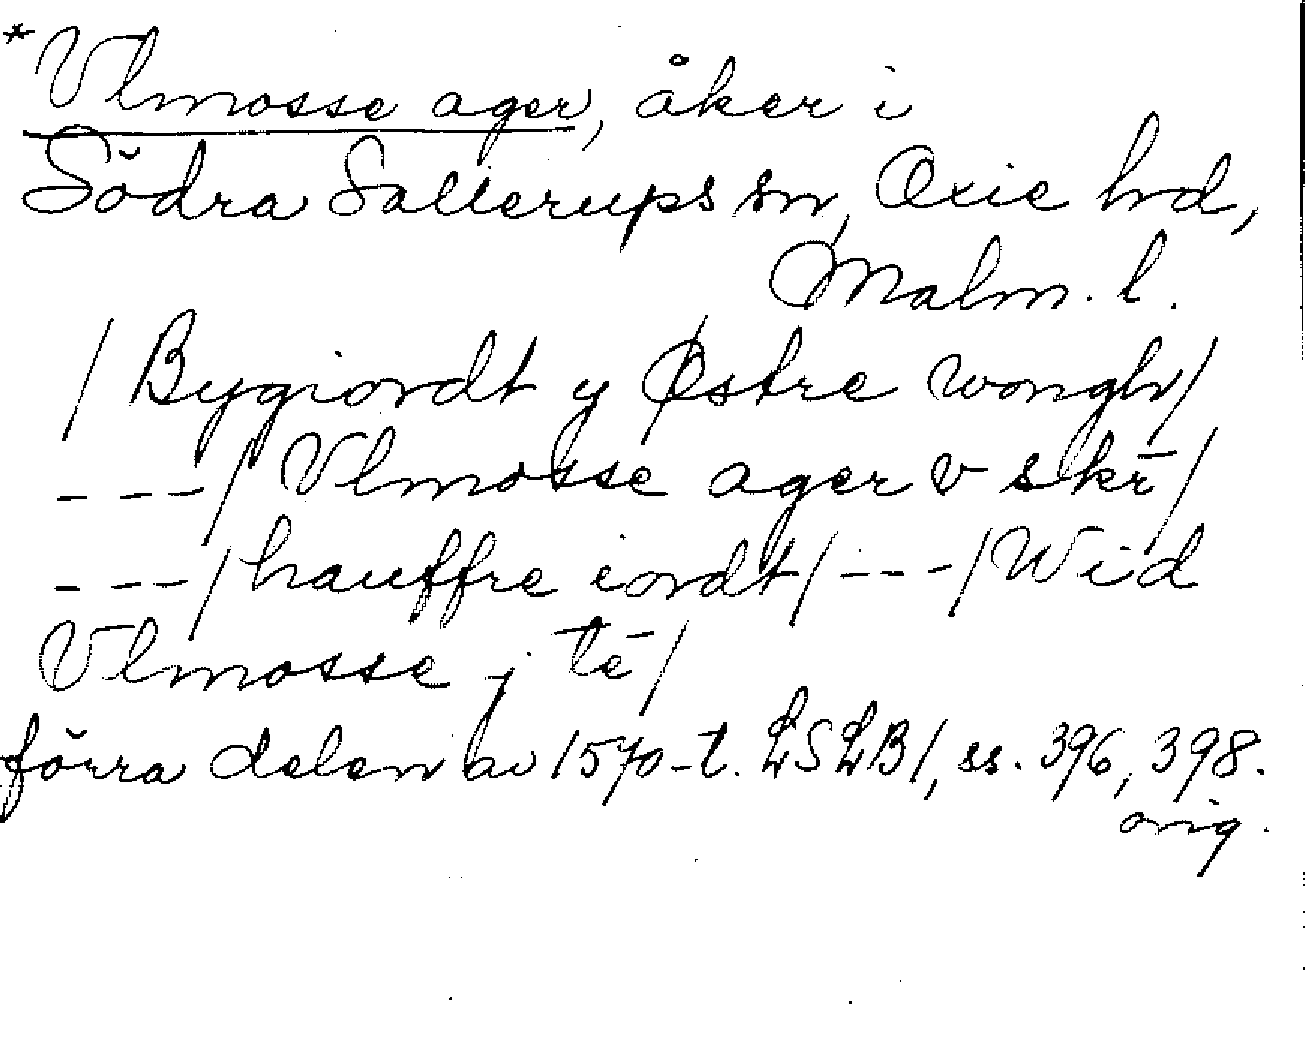 *Vlmosse ager, åker i
Södra Sallerups sn, Oxie hd,
Malm. l.
/ Bygiordt y Østre wongh/
---/ Vlmosse ager v skr̄/
---/ hauffre iordt/ ---/ Wid
Vlmosse j tē/
förra delen av 1570-t. LSLB1, ss. 396, 398.
orig.